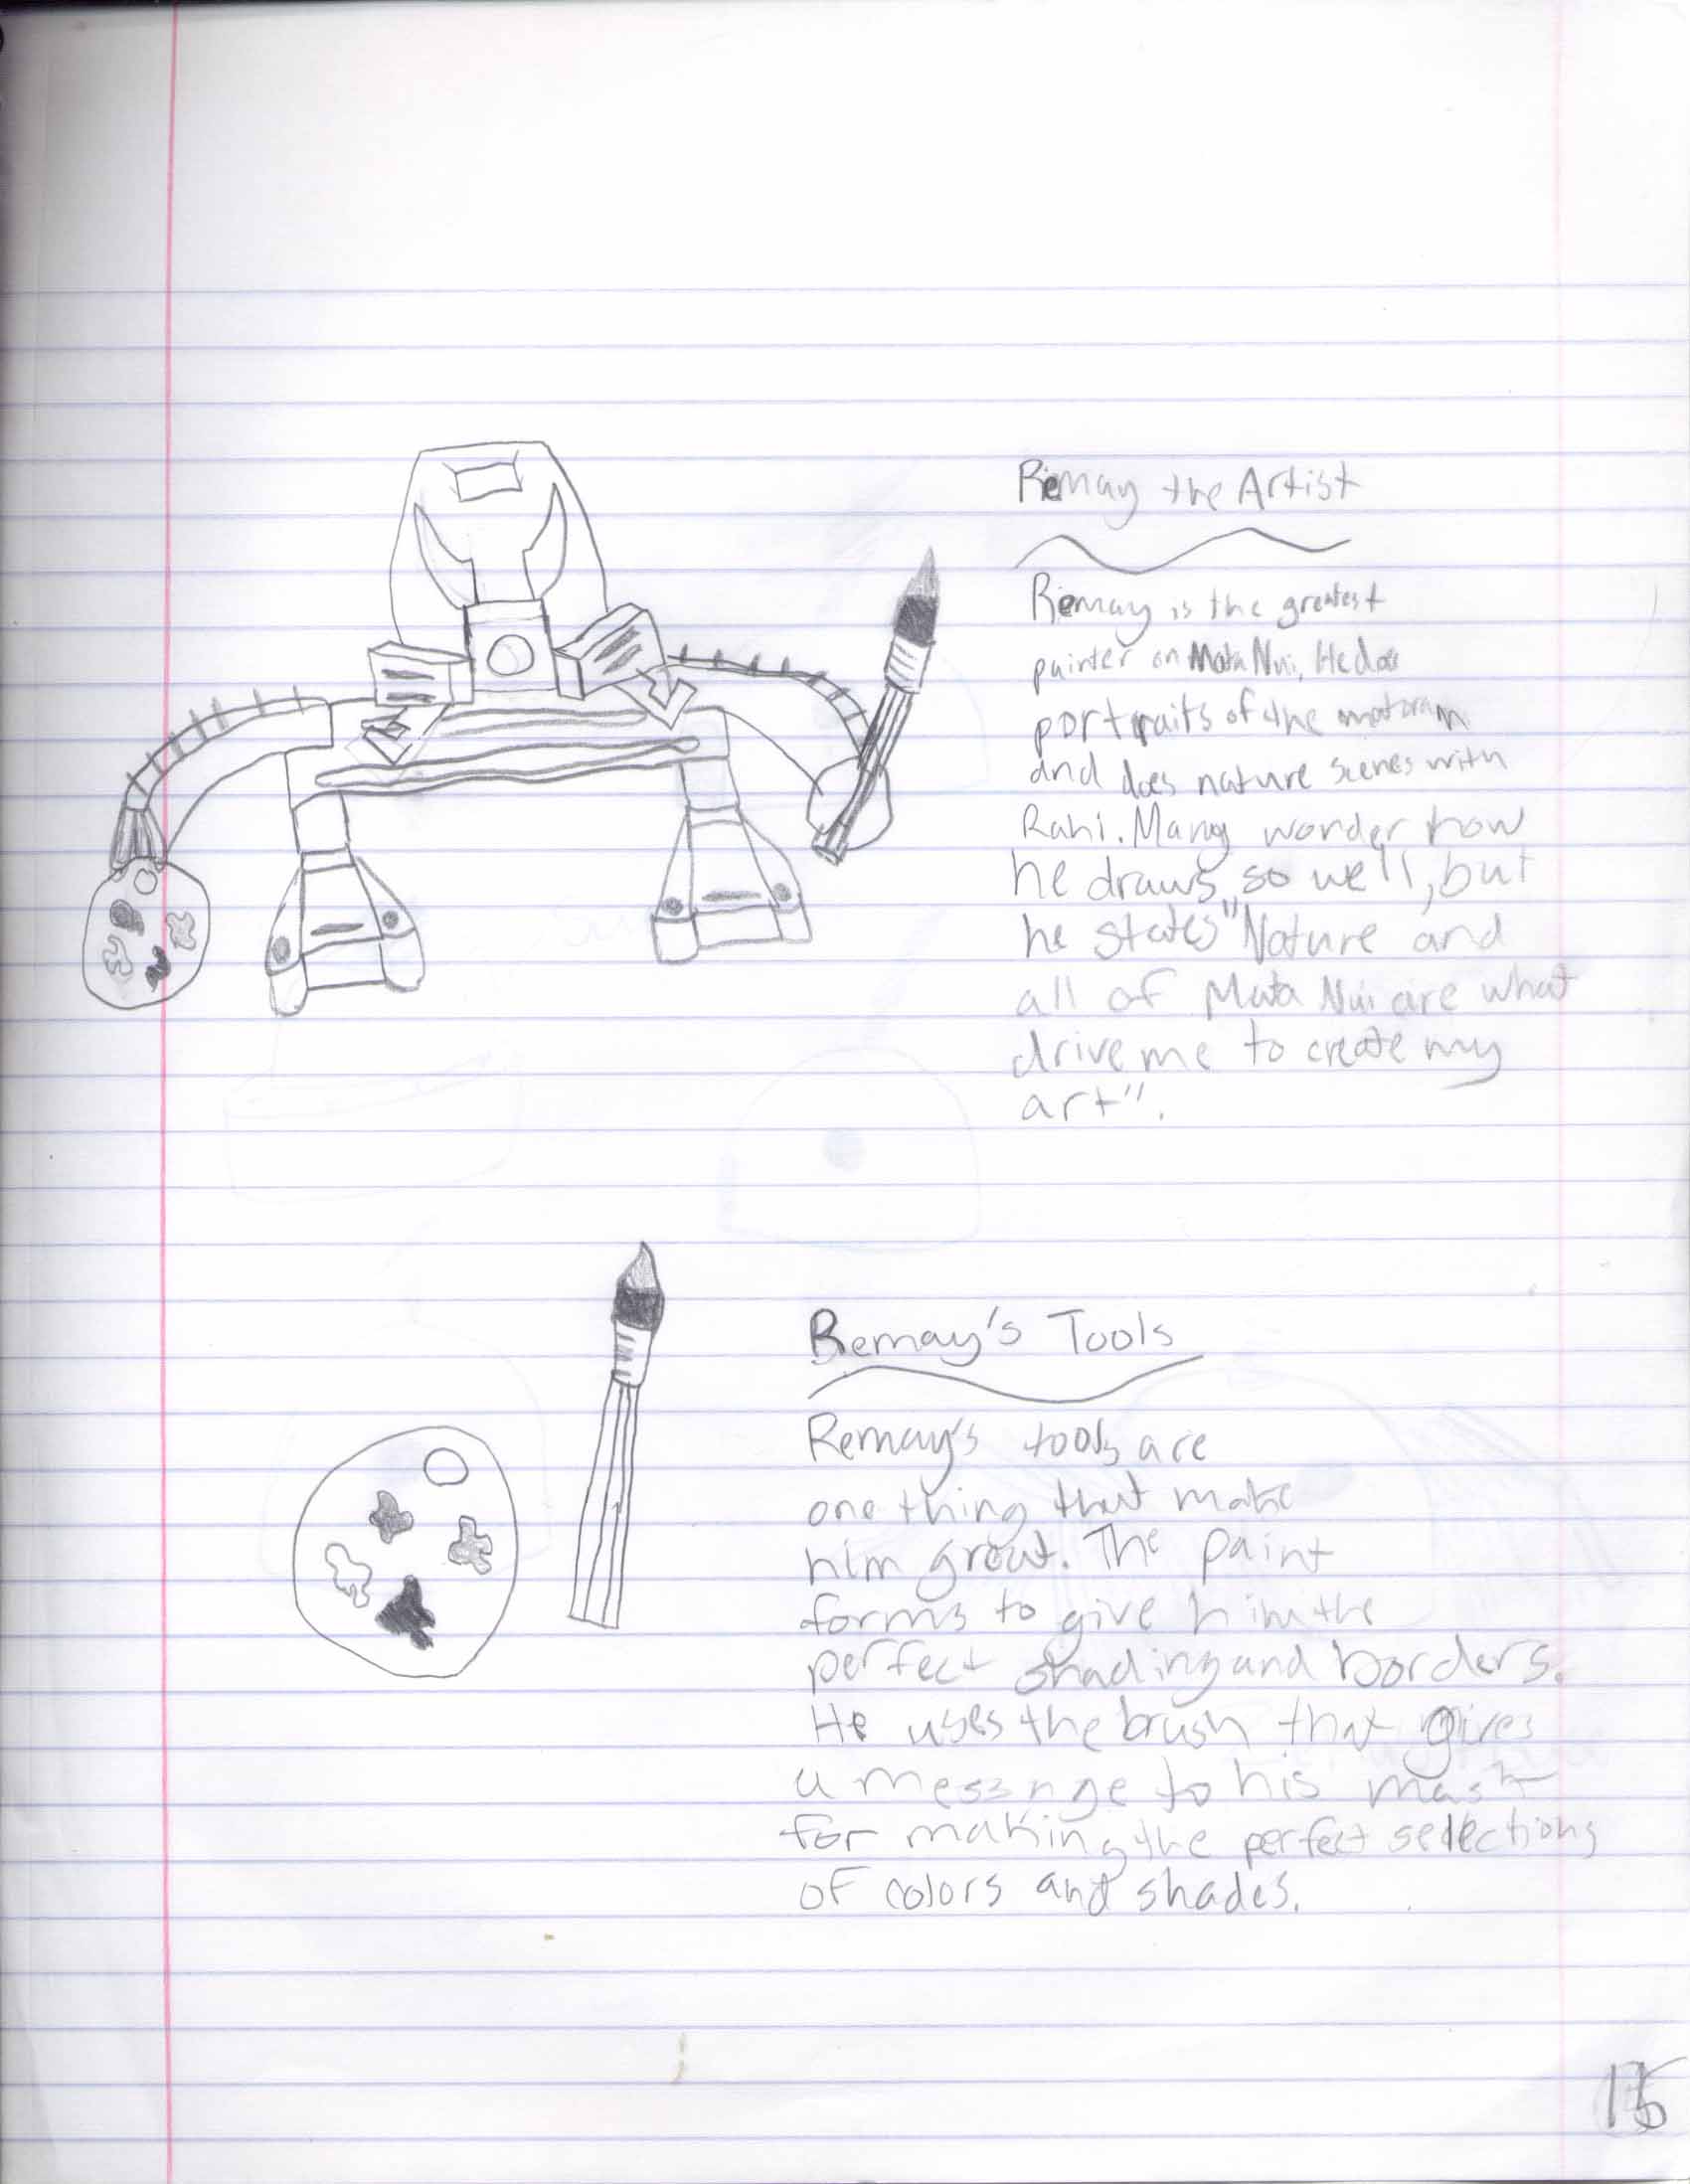 Remay the Artist
Remay is the greatest
painter on Mata Nui, He does
portraits of the matoran
and does nature scenes with
Rahi. Many wonder how
he draws so well, but
he states "Nature and
all of Mata Nui are what
drive me to create my
art".
Remay's Tools
Remay's tools are
one thing that make
him great. The paint
forms to give him the
perfect shading and borders.
He uses the brush that gives
a message to his mask
for making the perfect selections
of colors and shades.